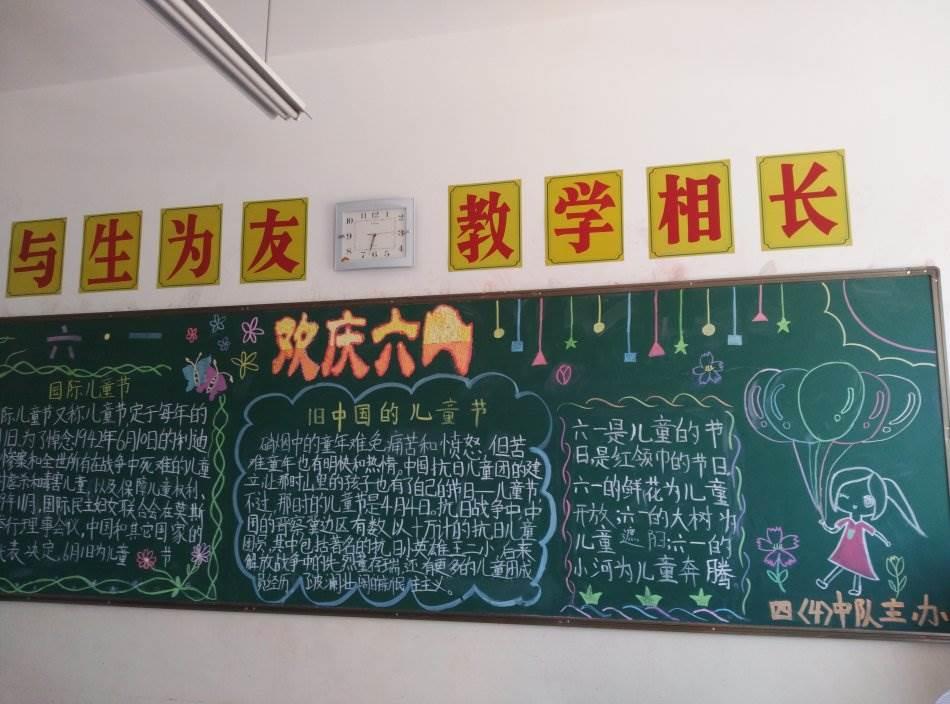 与生为友
教学相长
10 11 12 1 2 3 4 5 6 7 8 9
六·一
欢庆六
国际儿童节
际儿童节又称儿童节,定于每年的
月1日,为了悼念1942年6月10日的利迪
惨案和全世界所有在战争中死难的儿童
虐杀和毒害儿童,以及保障儿童权利、
49年11月,国际民主妇女联合会在莫斯
举行理事会议,中国和其它国家的
代表决定,6月1日为儿童节
旧中国的儿童节
硝烟中的童年难免痛苦和愤怒,但苦
难童年也有明快和热情。中国抗日儿童团的建
立,让那时儿里的孩子也有了自己的节日——儿童节
不过,那时的儿童节是4月4日,抗日战争中中
国的晋察冀边区有数以十万计的抗日儿童
团员,其中包括著名的抗日小英雄王二小,后来
解放战争中的
还有更多的儿童用
六一是儿童的节
日,是红领巾的节日
六一的鲜花为儿童
开放,六一的大树为
儿童遮阳,六一的
小河为儿童奔腾
四(4)中队主办